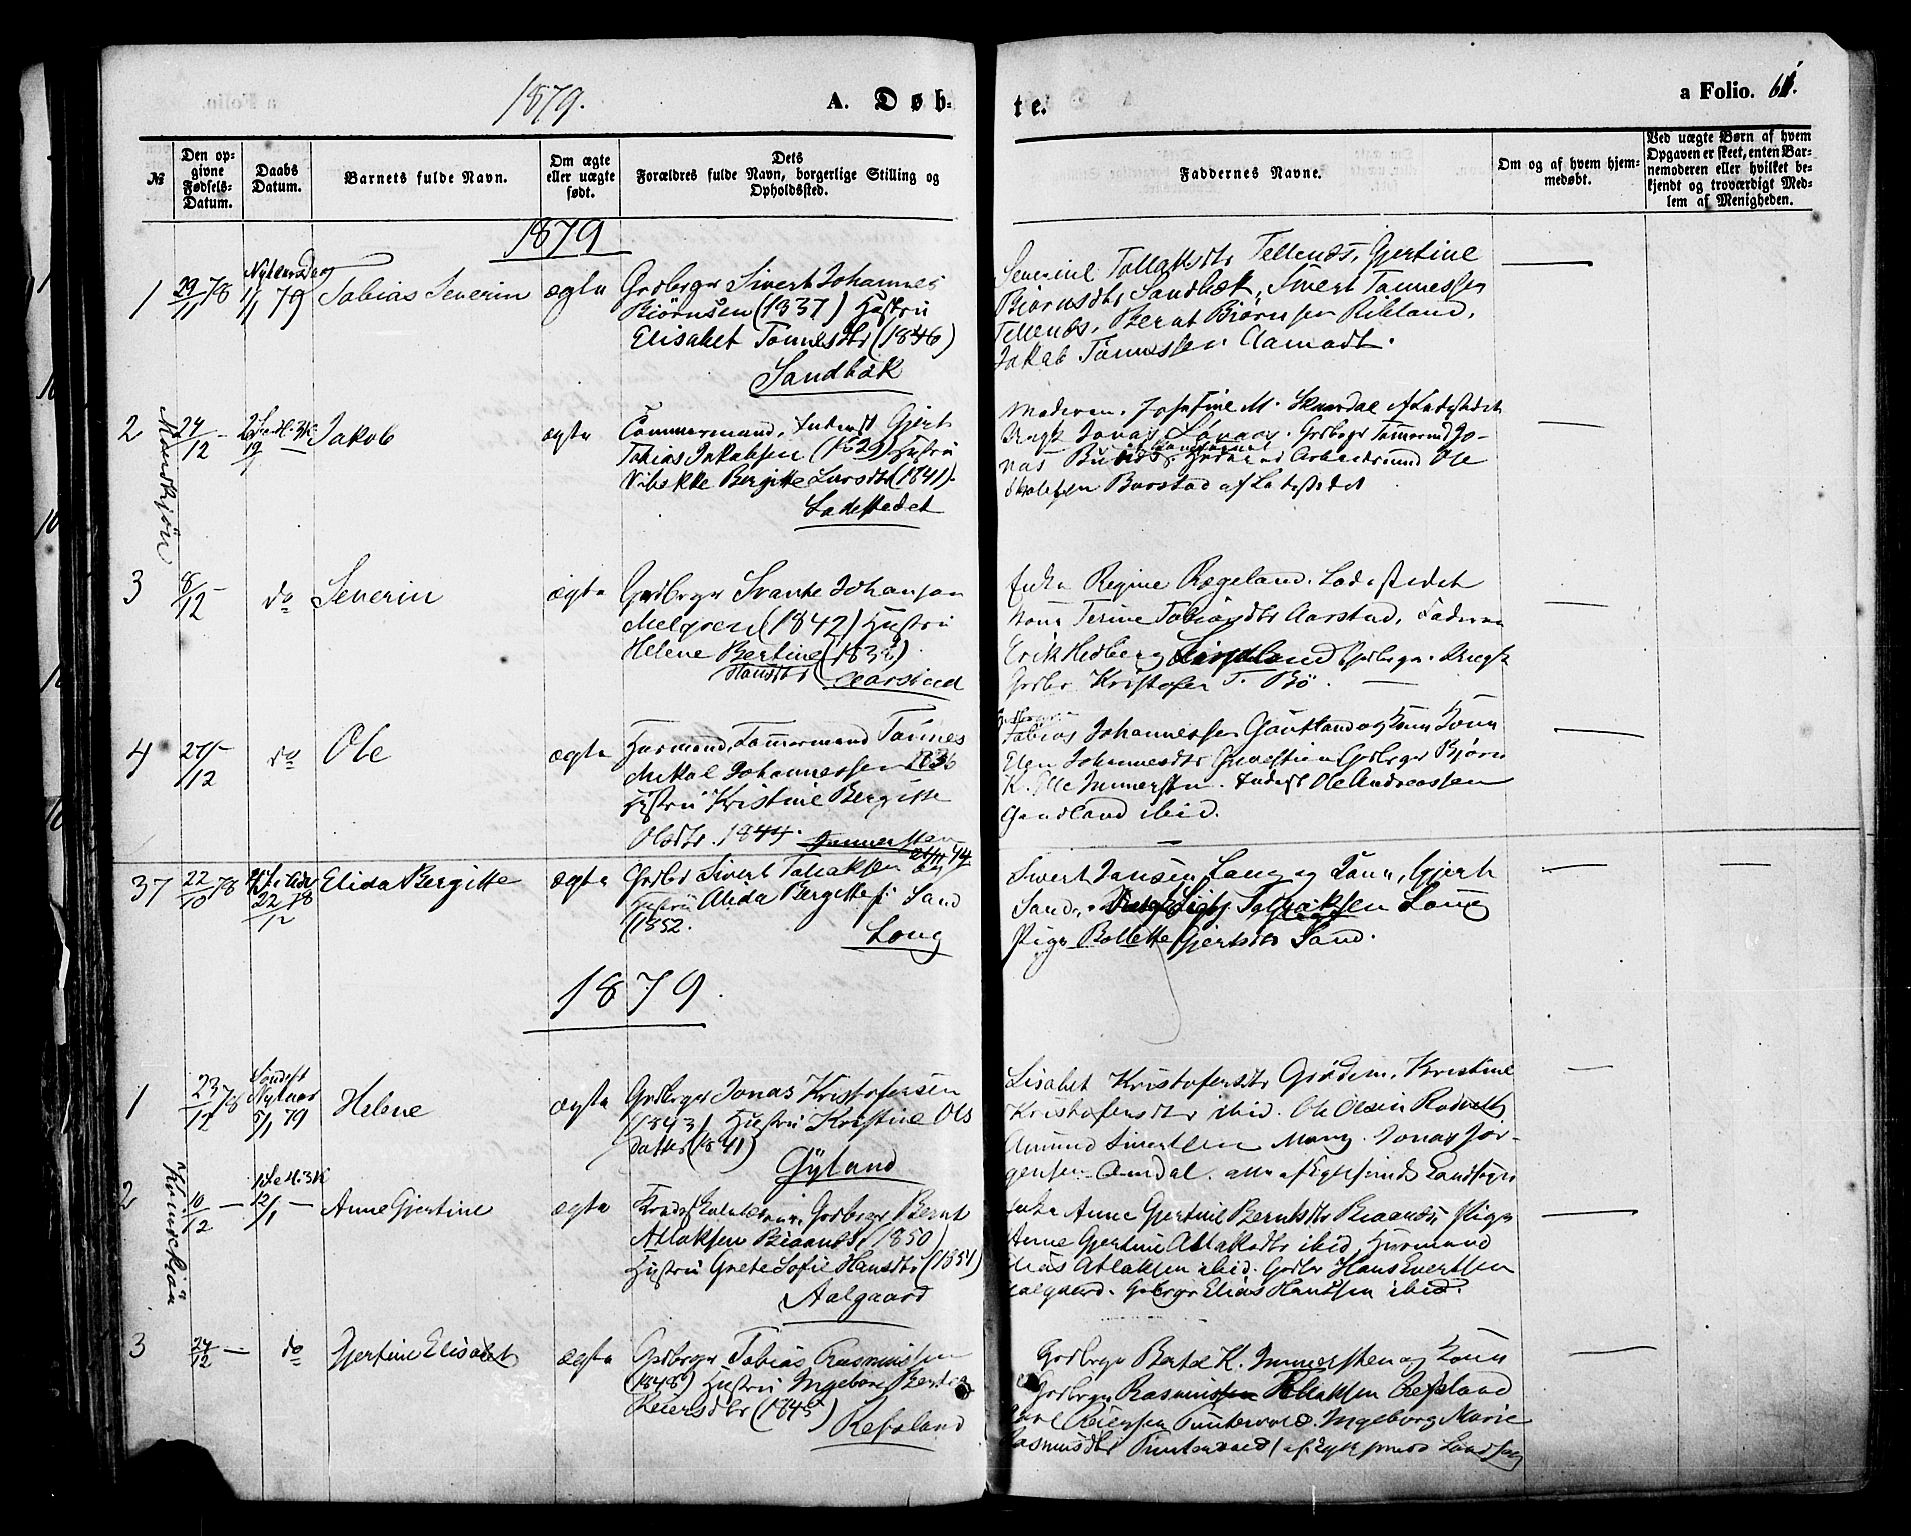 1879.
A. Døb-
te.
a Folio. 61.
№
Den op-
givne
Fødsels-
Datum.
Daabs
Datum.
Barnets fulde Navn.
Om ægte
eller uægte
født.
Dets
Forældres fulde Navn, borgerlige Stilling og
Opholdssted.
Faddernes Navne.
Om og af hvem hjem-
medøbt.
Ved uægte Børn af hvem
Opgaven er skeet, enten Bar-
nemoderen eller hvilket be-
kjendt og troværdigt Med-
lem af Menigheden.
1879
1 29/11 78 Nytaarsdag 1/1 79 Tobias Severin ægte
Grdbrgr Sivert Johannes
Biørnsen (1837) Hustru
Elisabet Tønnesdtr (1846)
Sandbæk
Severine Tollaksdtr Tellends, Gjertine
Biørnsdtr Sandbæk, Sivert Tønnessen
Tellends, Bernt Biørnsen Ribland,
Jakob Tønnessen Aamodt.
2 24/12 – 19/1 – Jakob ægte
Tømmermand, Inderst Gjert
Tobias Jakobsen (1829) Hustru
Vibekke Bergitte Larsdtr (1841).
Ladestedet
Moderen, Josefine M. Skaardal Ladestedet
Ungk Jonas Grdbrgr Tømermd Jo-
nas Arbeidsmand Ole
Barstad af Ladestedet
3 8/12 – do Severin ægte
Grdbrgr Svante Johanson
Melgren (1842) Hustru
Helene Bertine (1838)
Hansdtr Aarstad
Enke Regine Rægeland. Ladestedet
Kone Terine Tobiasdtr Aarstad, Faderen
Erik Hedberg Grdbrgr. Ungk
Grdbr Kristofer T. Bø.
4 27/12 – do Ole ægte
Husmand, Tømmermand Tønnes
Mikal Johannessen 1836
Hustru Kristine Bergitte
Olsdtr. 1844.
Tobias Johannessen Gautland og Kone
Elen Johannesdtr Grdbrgr Bjørn
K. Ole Immersten. Inderst Ole Andreassen
Gautland ibid.
37 22/10 78 22/12 78 Elida Bergitte ægte
Grdbr Sivert Tollaksen Log
Hustru Alida Bergitte f: Sand
(1852.
Loug
Sivert Jansen Loug og Kone, Gjert
Sand, Tollaksen Loug
Pige Bollette Gjertsdtr Sand.
1879.
1 23/12 78 Søndeft Nytaar 5/1 79 Helene ægte
Grdbrger Jonas Kristofersen
(1843) Hustru Kristine Ols
datter (1841)
Gyland
Lisabet Kristofersdtr Grødem, Kristine
Kristofersdtr ibid. Ole Olsen Rodvelt
Amund Sivertsen Mong. Jonas Jør-
gensen Omdal. alle af Egersunds Landsogn
2 10/12 – 12/1 – Anne Gjertine ægte
Grdbrger Bernt
Atlaksen Biaands (1850)
Hustru Grete Sofie Hansdtr (1851)
Aalgaard
Enke Anne Gjertine Berntsdtr Biaands, Pige
Anne Gjertine Atlaksdtr ibid, Husmand
Elias Atlaksen ibid. Grdbr Hans Evertsen
Aalgaard. Gdbrgr Elias Hanssen ibid.
3 24/12 – do Gjertine Elisabet ægte
Grdbrger Tobias Rasmussen
(1848) Hustru Ingeborg Bertine
Reiersdtr (1845)
Refsland
Grdbrgr Bertel K. Immersten og Kone
Grdbrgr Rasmussen Tollaksen Refsland
Reiersen Puntervold. Ingeborg Marie
Rasmusdtr Puntervold (af Egersunds Landsogn